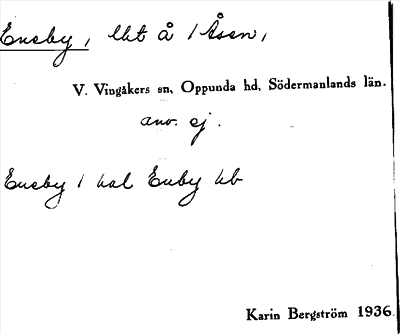 Eneby, lht å /Åsen,
V. Vingåkers sn, Oppunda hd, Södermanlands län.
anv. ej.
Eneby / kal Enby kb
Karin Bergström 1936.